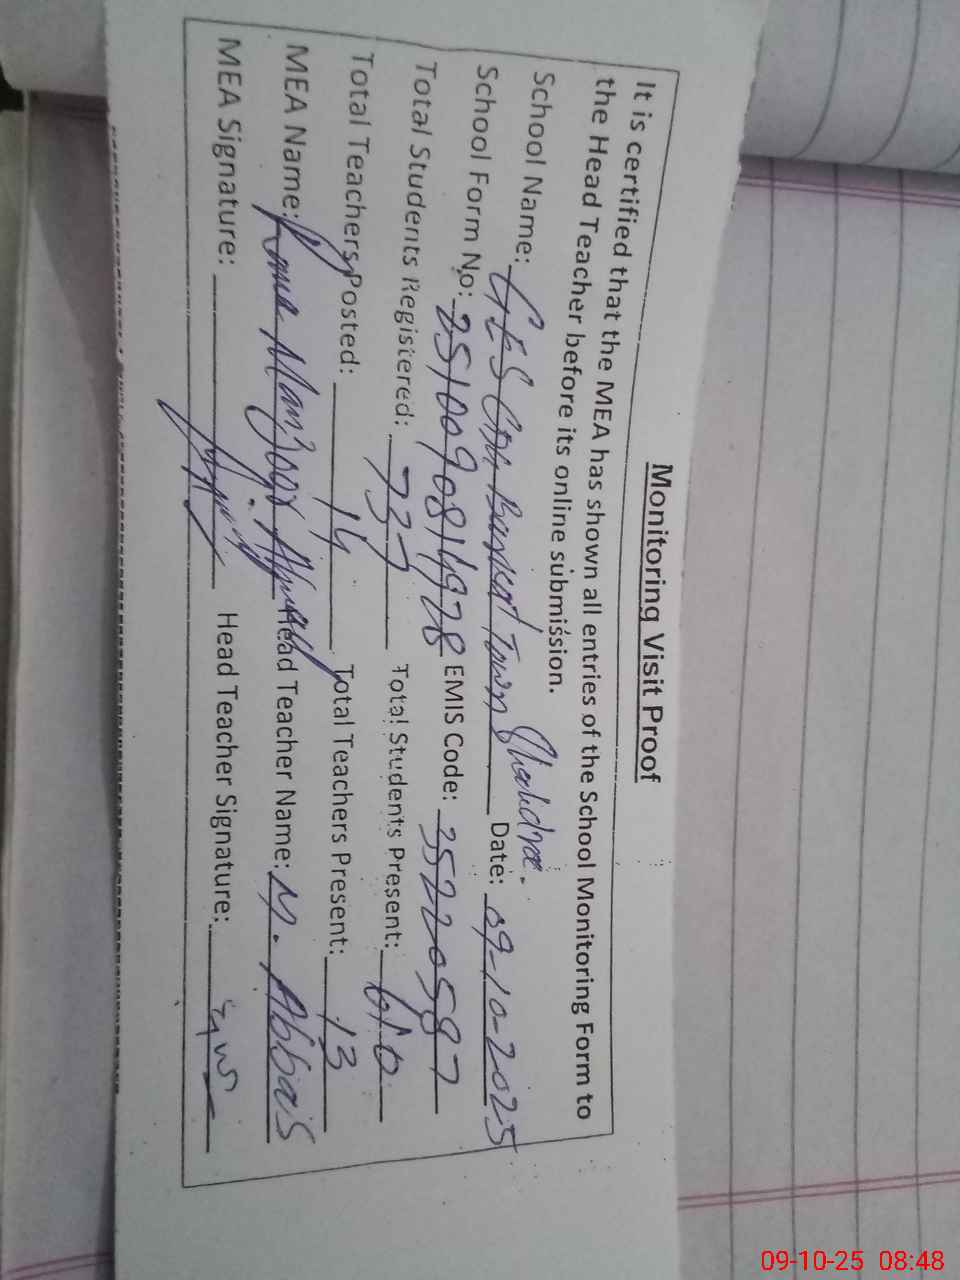 Monitoring Visit Proof
It is certified that the MEA has shown all entries of the School Monitoring Form to
the Head Teacher before its online submission.
School Name: Town Shahdra. Date: 09-10-2025
School Form No: 2510090814978 EMIS Code: 35220587
Total Students Registered: 737 Total Students Present: 610
Total Teachers Posted: 14 Total Teachers Present: 13
MEA Name: Ahmad Head Teacher Name: M. Abbas
MEA Signature: Head Teacher Signature:
09-10-25 08:48